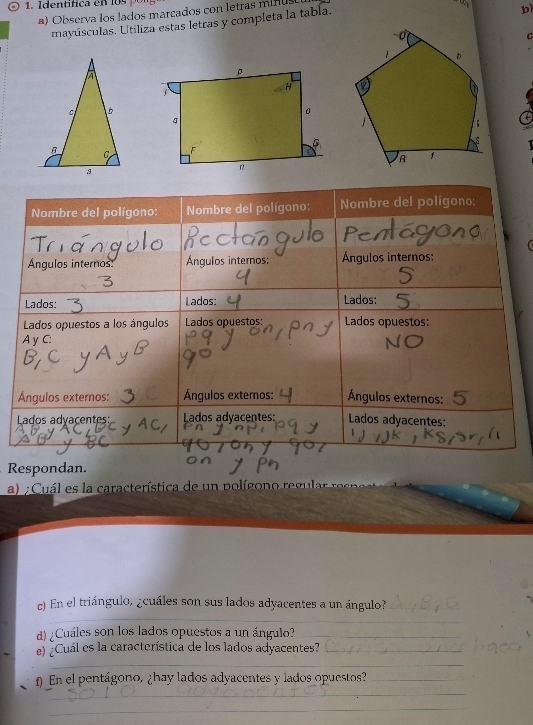 1. Identifica en los
a) Observa los lados marcados con letras
mayúsculas. Utiliza estas letras y completa la tabla.
b)
A
c b
B C
a
p
H
q o
F G
n
h
i
R
S
Nombre del polígono: Nombre del polígono: Nombre del polígono:
Triángulo Rectángulo Pentágono
Ángulos internos: Ángulos internos: Ángulos internos:
3 4 5
Lados: 3 Lados: 4 Lados: 5
Lados opuestos a los ángulos Lados opuestos: Lados opuestos:
A y C: pq y on, pn y NO
B, C y A y B qo
Ángulos externos: 3 Ángulos externos: 4 Ángulos externos: 5
Lados adyacentes: Lados adyacentes: Lados adyacentes:
AB y AC, BC y AC, pn y np, pq y
AB y BC qo, on y qo,
on y pn
Respondan.
a) ¿Cuál es la característica de un polígono regular
c) En el triángulo, ¿cuáles son sus lados adyacentes a un ángulo?
d) ¿Cuáles son los lados opuestos a un ángulo?
e) ¿Cuál es la característica de los lados adyacentes?
f) En el pentágono, ¿hay lados adyacentes y lados opuestos?
solo adyacentes